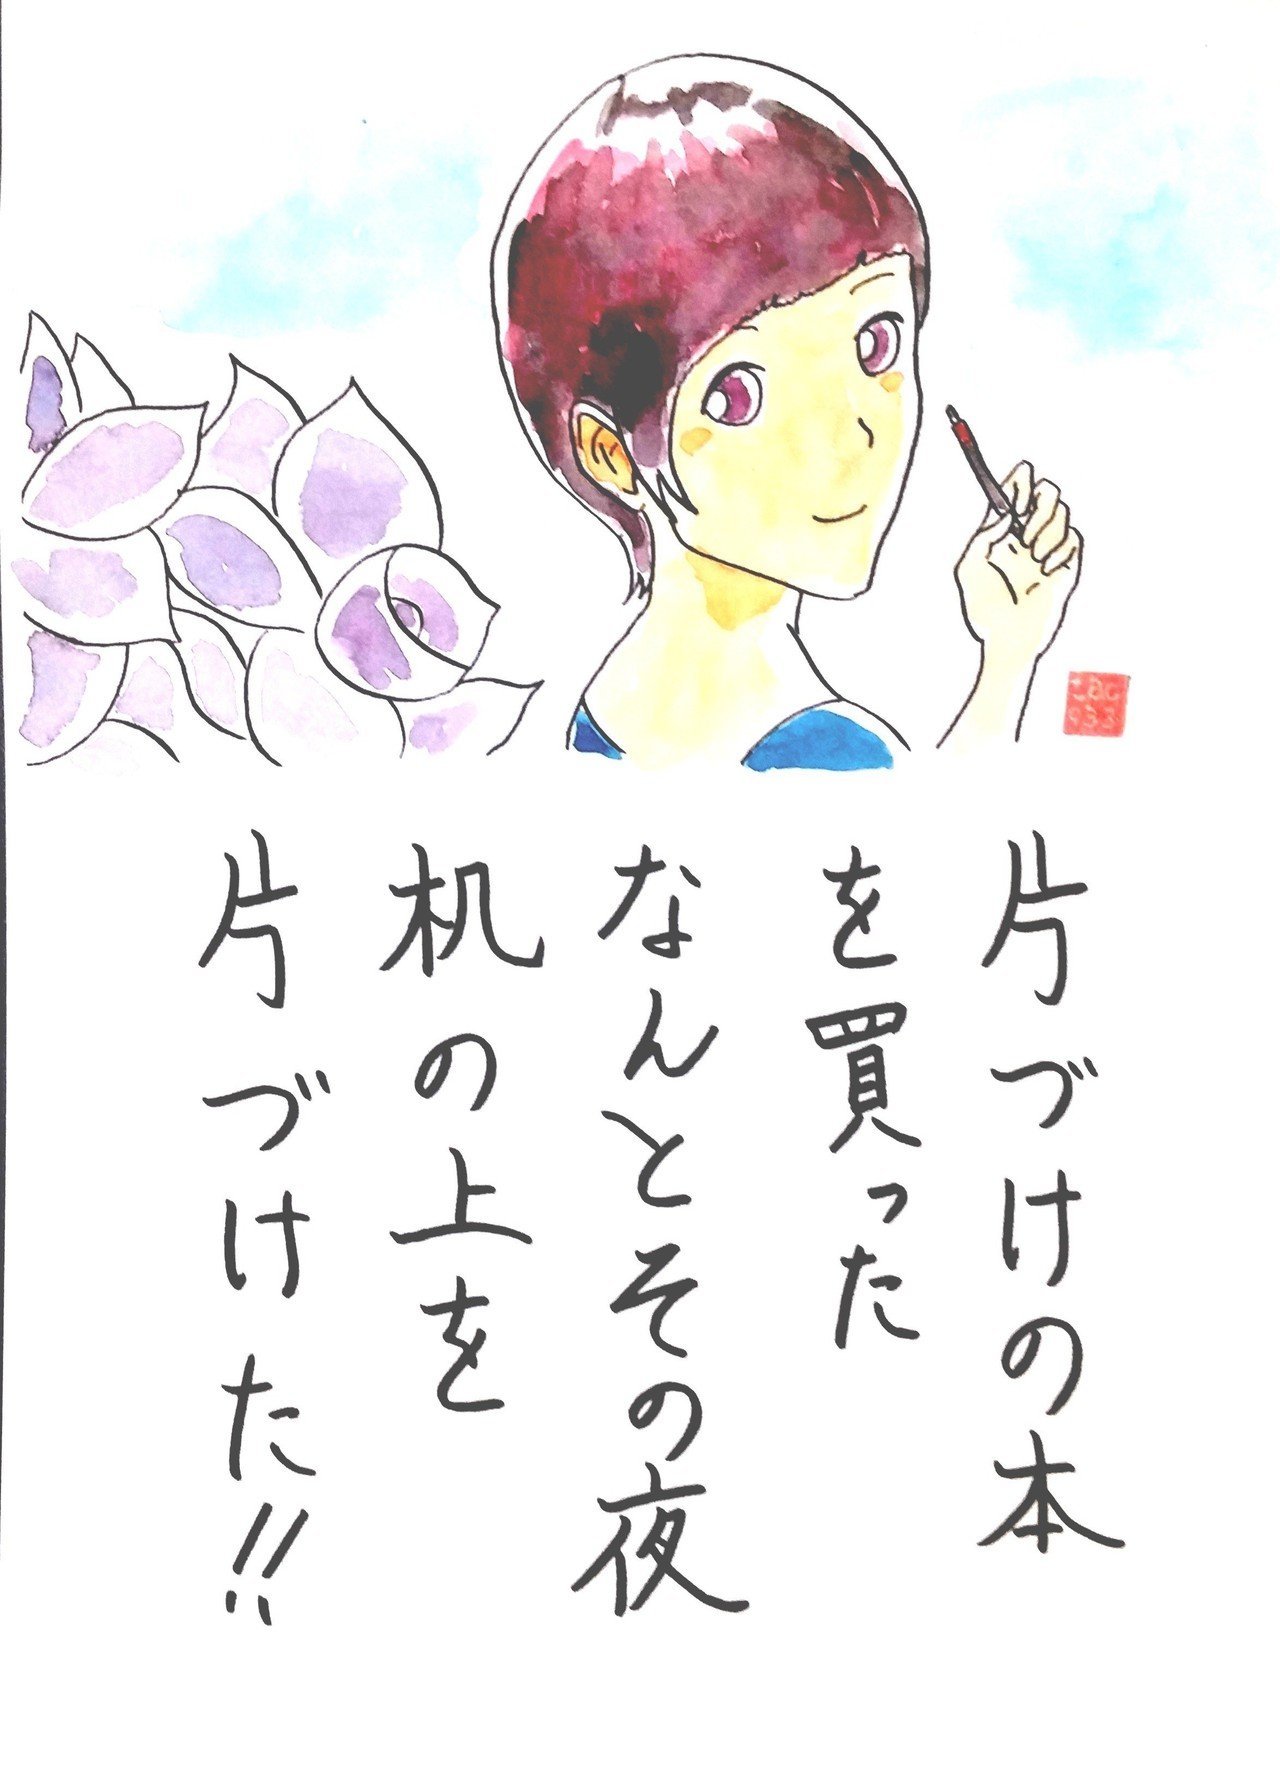 片づけの本
を買った
なんとその夜
机の上を
片づけた!!